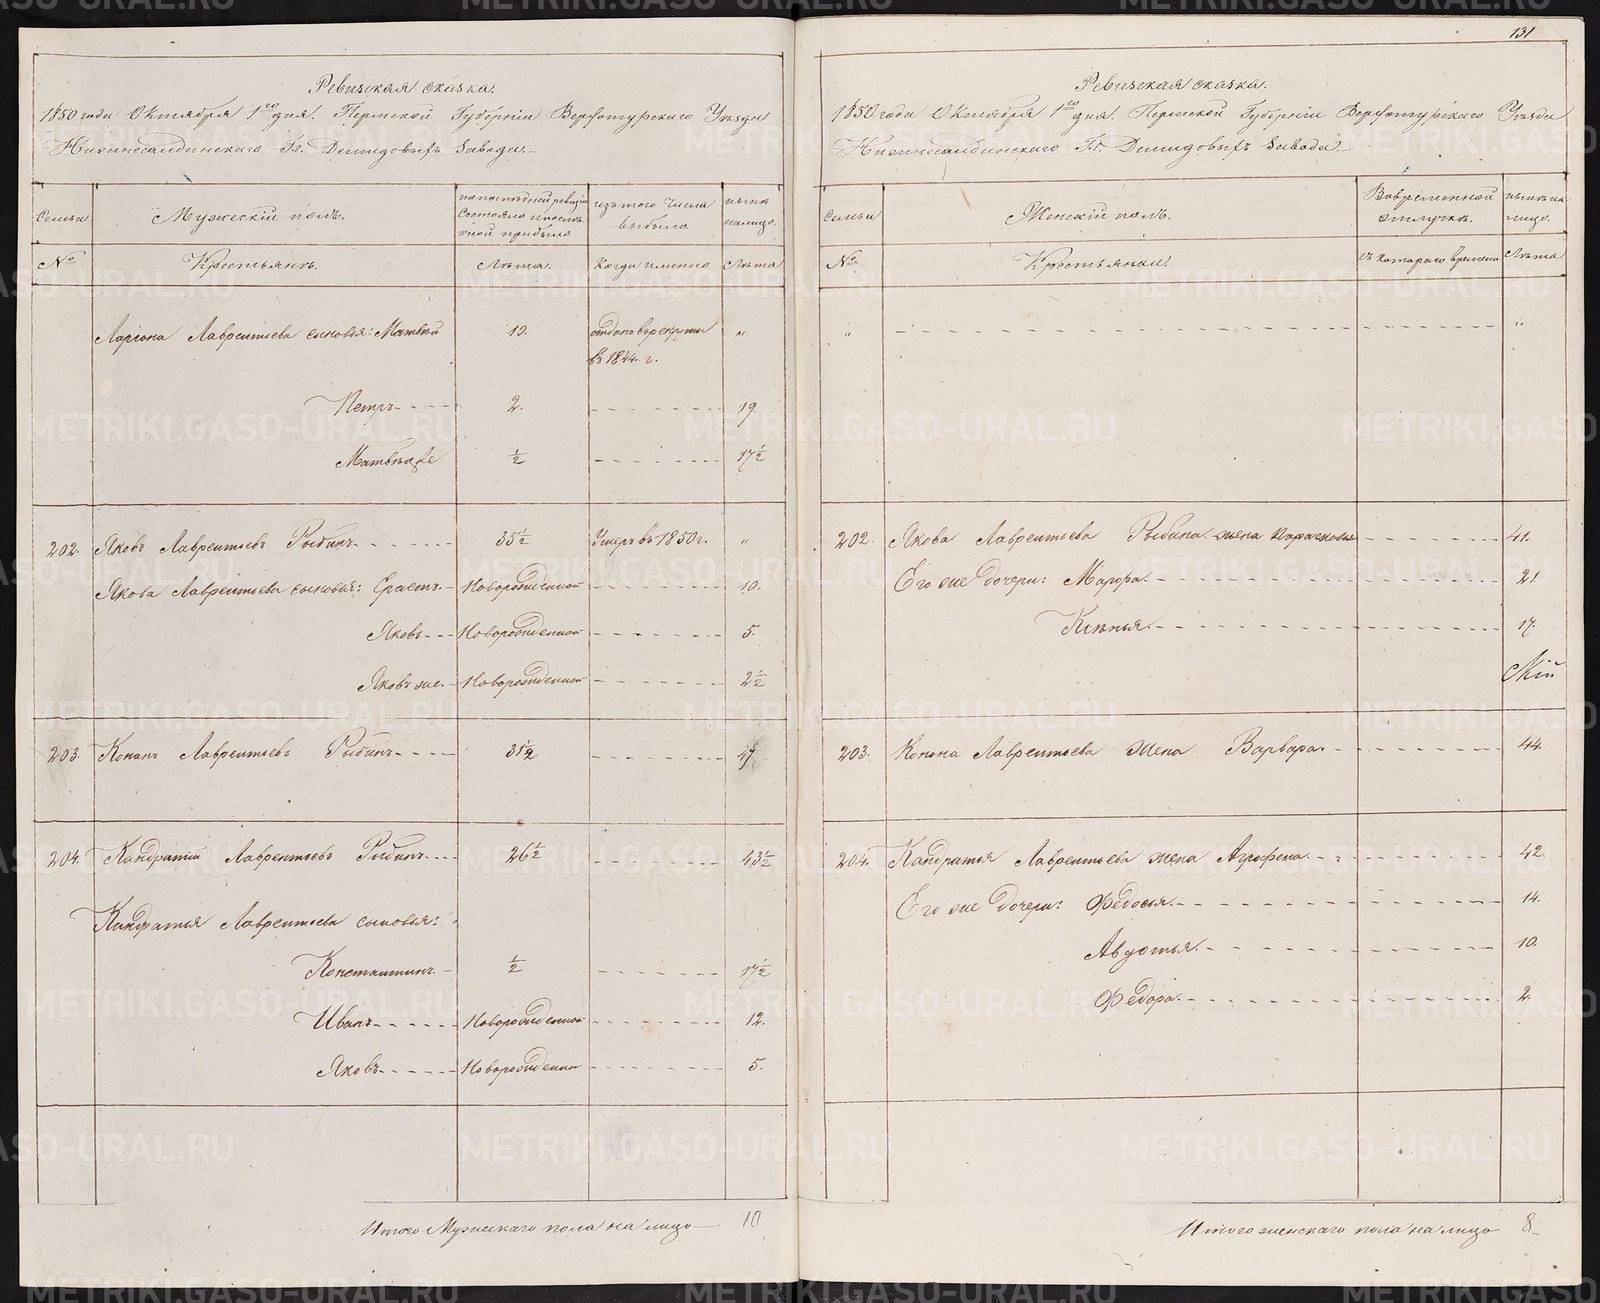 131
Ревизская сказка.
1850 года Октября 1го дня. Пермской Губерніи Верхотурскаго Уѣзда
Нижнесалдинскаго Гг. Демидовыхъ Завода.
Семьи
Мужескій полъ.
по послѣдней ревизіи Состояло и послѣ оной прибыло
изъ того числа выбыло
нынѣ на лицо.
№
Крестьянъ.
Лѣта.
Когда именно
Лѣта
Ларіона Лаврентьева сыновья: Матвѣй 19. отданъ въ рекруты "
въ 1844 г.
Петръ 2. 19.
Матвѣй же ½ 17½
202. Яковъ Лаврентьевъ Рыбинъ 35½ Умеръ въ 1850 г. "
Якова Лаврентьева сыновья: Ерастъ Новорожденной 10.
Яковъ Новорожденной 5.
Яковъ же. Новорожденной 2½
203. Кононъ Лаврентьевъ Рыбинъ 31½ 47
204. Кандратій Лаврентьевъ Рыбинъ 26½ 43½
Кандратья Лаврентьева сыновья:
Константинъ ½ 17½
Иванъ Новорожденной 12.
Яковъ Новорожденной 5.
Итого Мужескаго пола на лицо 10
Ревизская сказка.
1850 года Октября 1го дня. Пермской Губерніи Верхотурскаго Уѣзда
Нижнесалдинскаго Гг. Демидовыхъ Завода.
Семьи
Женскій полъ.
Во временной отлучкѣ.
нынѣ на лицо.
№
Крестьянки.
съ котораго времени
Лѣта
" "
202. Якова Лаврентьева Рыбина жена Парасковья 41.
Его же дочери: Марфа 21
Ксѣнья 17.
203. Конона Лаврентьева жена Варвара 44.
204. Кандратья Лаврентьева жена Агрофена 42.
Его же дочери: Ѳедосья 14.
Авдотья 10.
Ѳедора 2.
Итого женскаго пола на лицо 8
METRIKI.GASO-URAL.RU